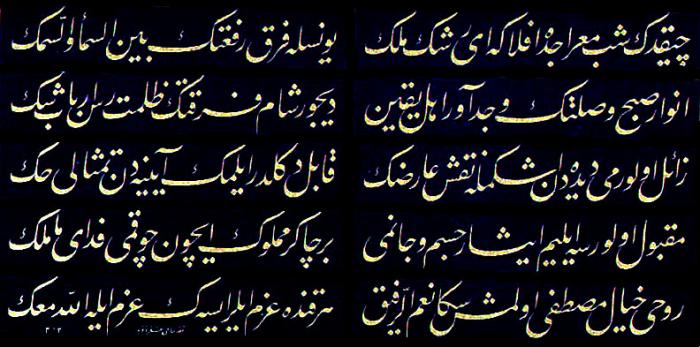 چیقدك شب معراجده افلاكه ای رشك ملك
یونسله فرق رفعتك بین السماء و السمك
انوار صبح وصلتك وجدآور اهل یقین
دیجور شام فرقتك ظلمت رس ارباب شك
زائل اولورمی دیده دن اشكمله نقش عارضك
قابل دكلدر ایلمك آیینه دن تمثالی حك
مقبول اولورسه ایلیم ایثار جسم و جانمی
بر چاكر مملوك ایچون چوقمی فدای ما ملك
روحی خیال مصطفی اولمش سكا نعم الرفیق
هر قنده عزم ایلر ایسه ك عزم ایله الله معك